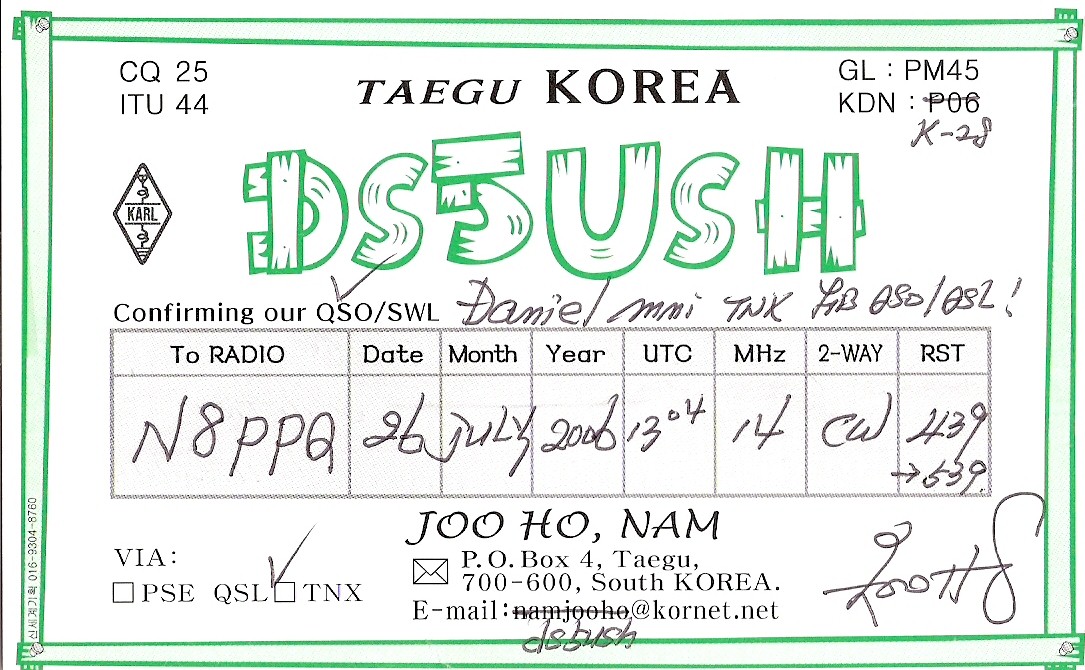 CQ 25
ITU 44
TAEGU KOREA
GL : PM45
KDN : P06
K-28
DS5USH
KARL
Confirming our QSO/SWL Daniel mni TNX QSO/QSL!
To RADIO Date Month Year UTC MHz 2-WAY RST
N8PPQ 26 JULY 2006 13 04 14 CW 439
→539.
JOO HO, NAM
VIA:
P.O. Box 4, Taegu,
☐ PSE QSL ☐ TNX
700-600, South KOREA.
E-mail: namjooho@kornet.net
ds5ush
신세계기획 016-9304-8760